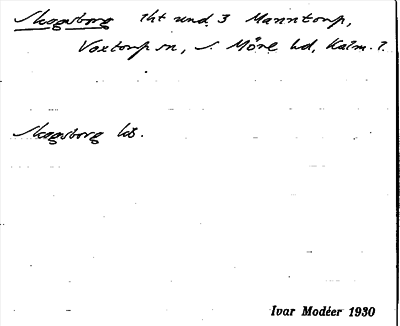 Skogsborg 1ht und. 3 Manntorp,
Voxtorp sn, S. Möre hd, Kalm. l.
Skogsborg lb.
Ivar Modéer 1930